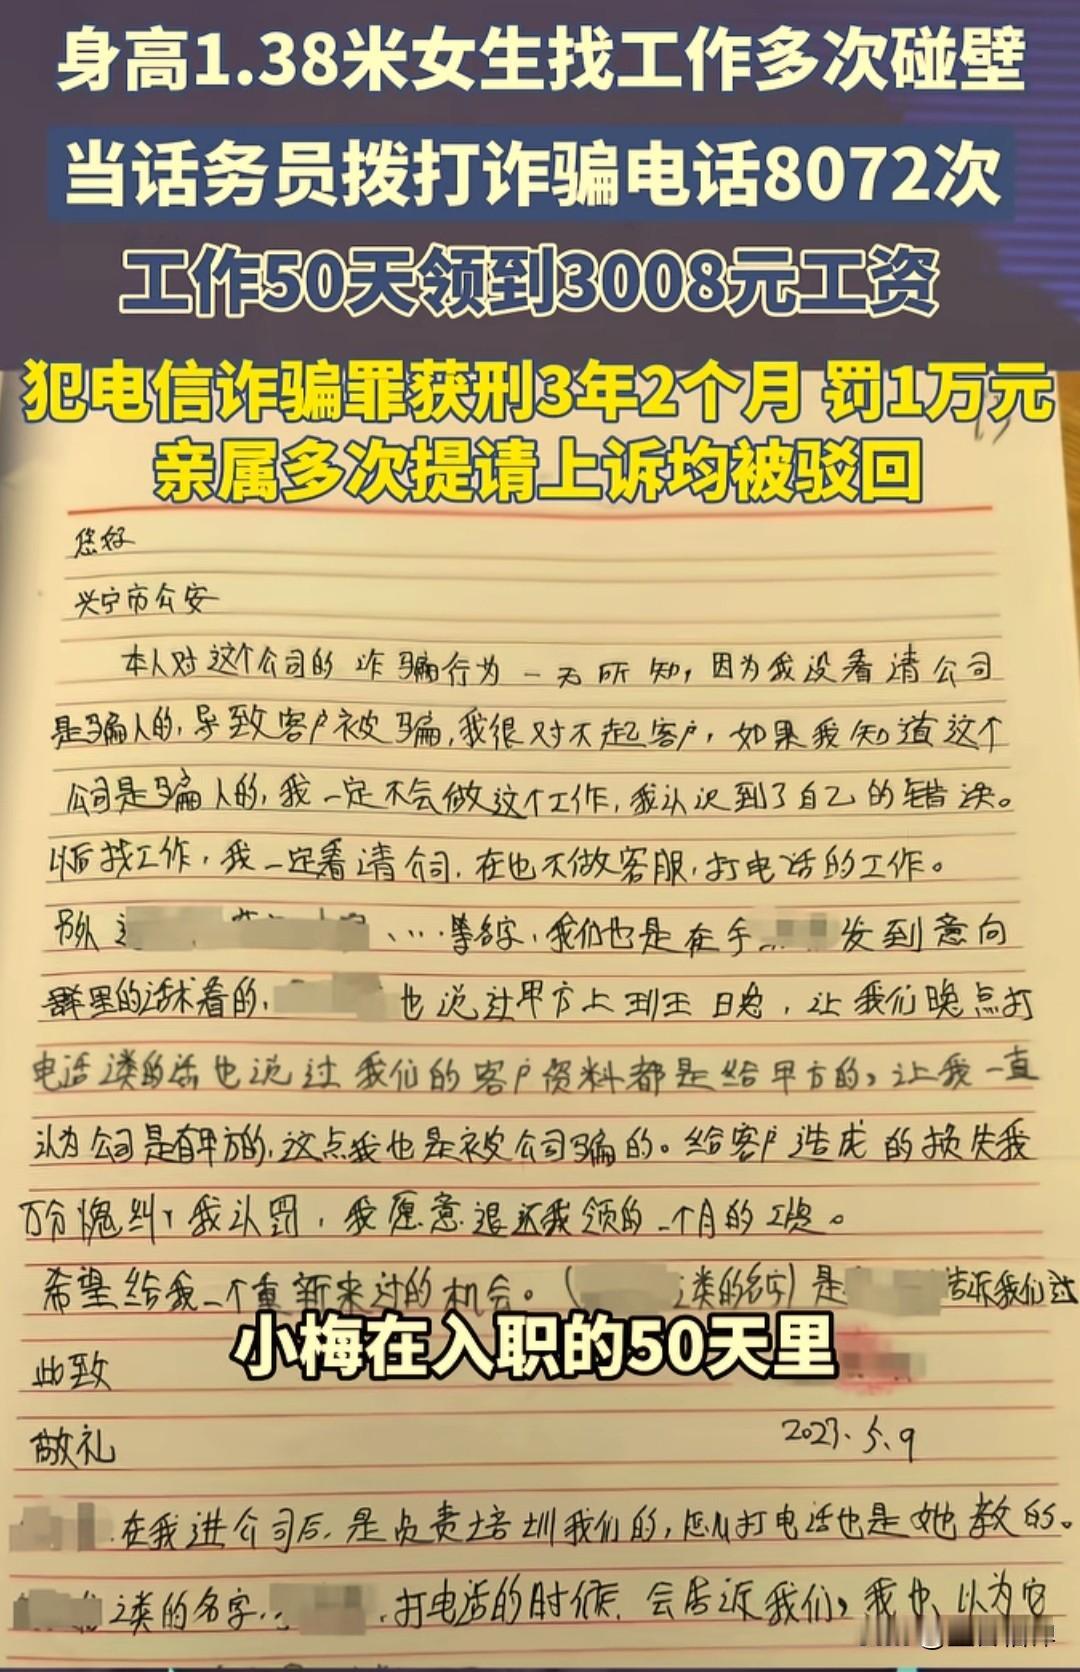 身高1.38米女生找工作多次碰壁
当话务员拨打诈骗电话8072次
工作50天领到3008元工资
犯电信诈骗罪获刑3年2个月 罚1万元
亲属多次提请上诉均被驳回
您好
兴宁市公安
本人对这个公司的诈骗行为一无所知,因为我没看请公司
是骗人的,导致客户被骗,我很对不起客户,如果我知道这个
公司是骗人的,我一定不会做这个工作,我认识到了自己的错误。
以后找工作,我一定看请公司,在也不做客服,打电话的工作。
另外
、…等名字,我们也是在 发到意向
群里的话术看的, 也说过甲方上到 ,让我们晚点打
电话之类的话也说过我们的客户资料都是给甲方的,让我一直
认为公司是有甲方的,这点我也是被公司骗的。给客户造成的损失我
万分愧纠,我认罚,我愿意退还我领的一个月的工资。
希望给我一个重新来过的机会。( 之类的名字)是 告诉我们过
小梅在入职的50天里
此致
敬礼
2023.5.9
在我进公司后,是负责培训我们的,怎么打电话也是她教的。
之类的名字 ,打电话的时候,会告诉我们,我也以为